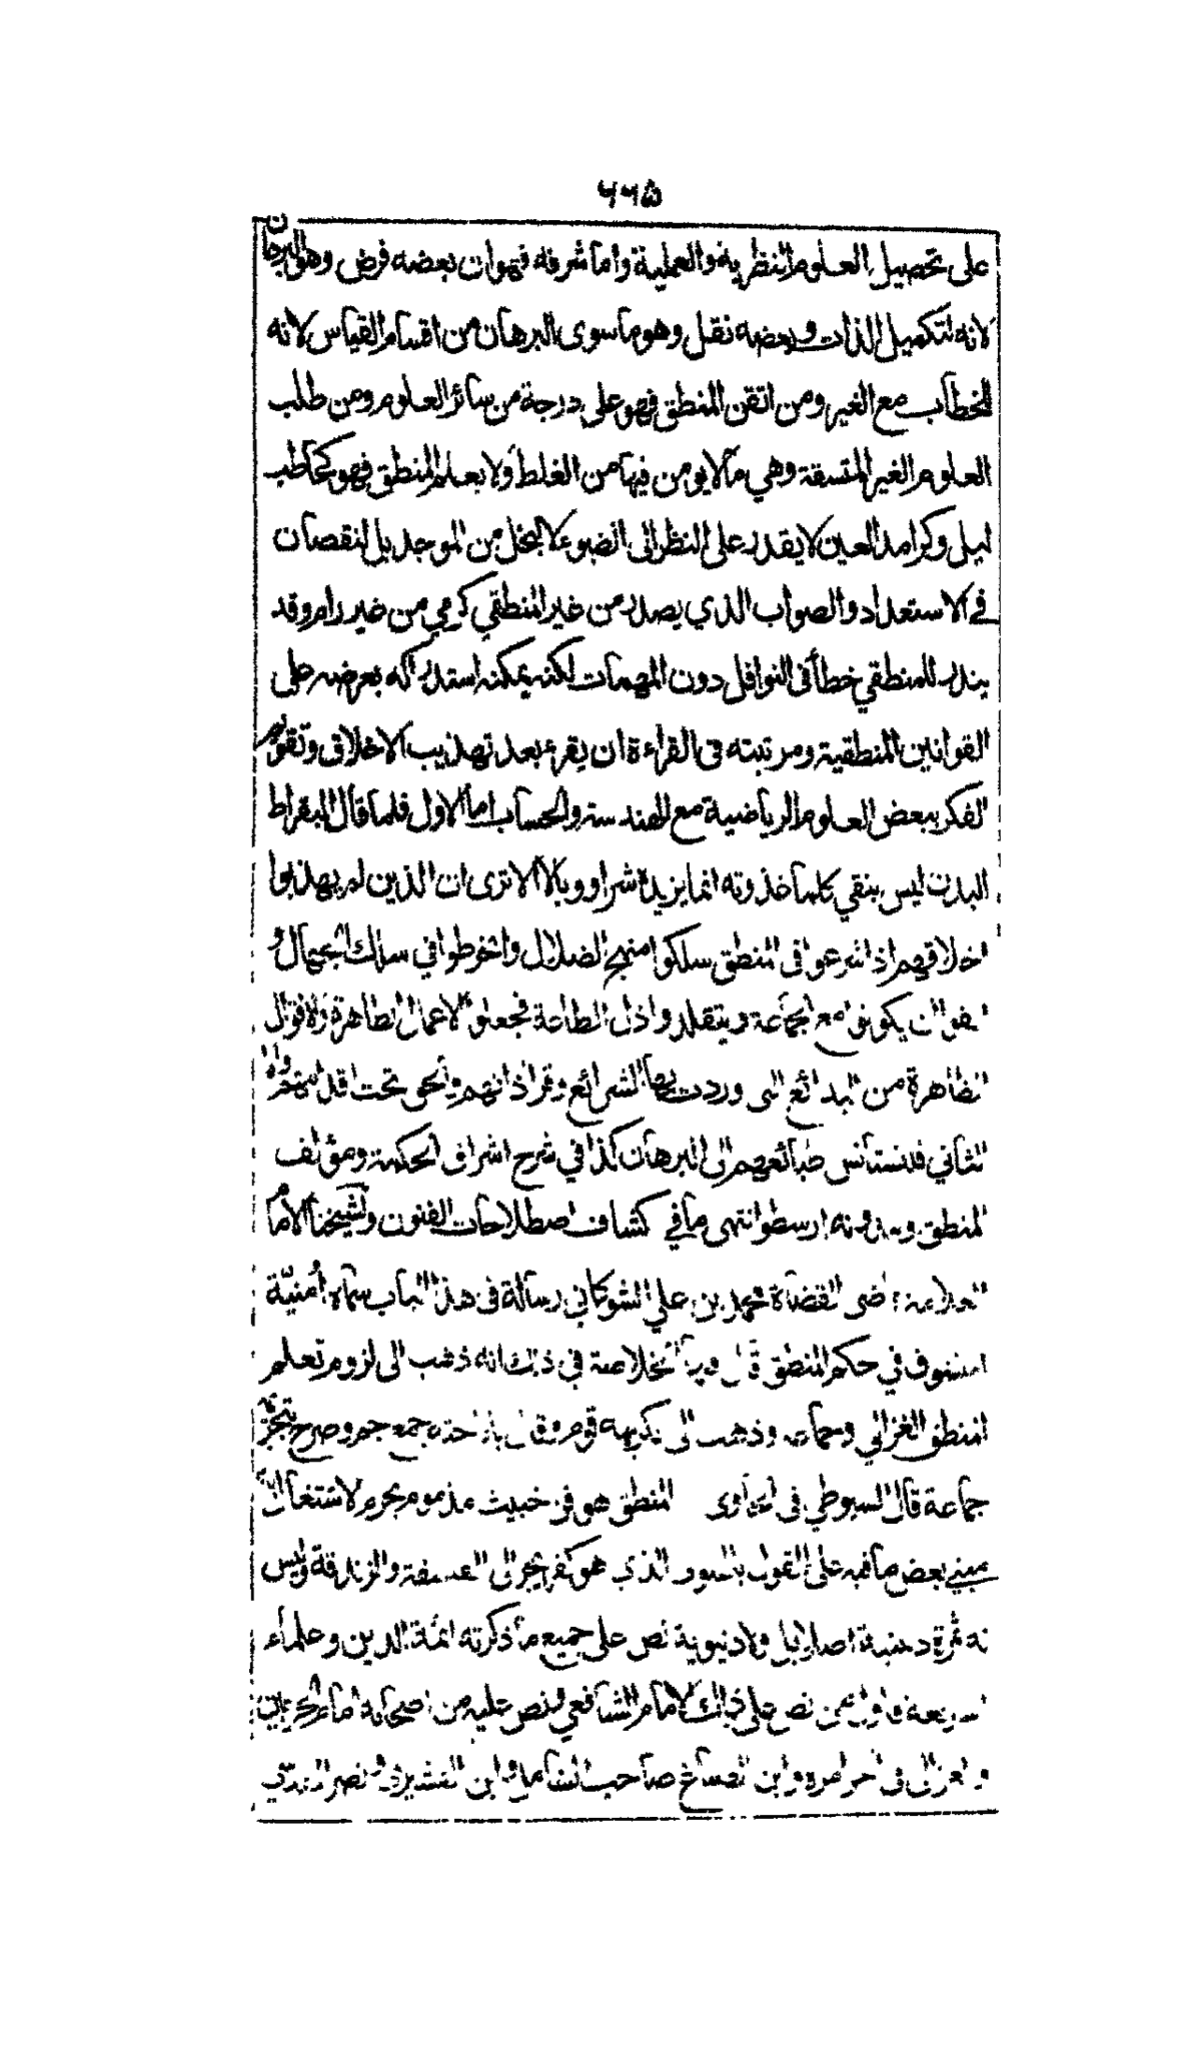 ٦٦٥
على تحصيل العلوم النظرية والعملية واما شرفه فهو ان بعضه فرض وهو البرهان
لانه لتكميل الذات وبعضه نفل وهو ما سوى البرهان من اقسام القياس لانه
للخطاب مع الغير ومن اتقن المنطق فهو على درجة من سائر العلوم ومن طلب
العلوم الغير المتسقة وهي ما لا يومن فيها من الغلط ولا يعلم المنطق فهو كحاطب
ليل وكرامد العين لا يقدر على النظر الى الضوء لا لبخل من الموجد بل لنقصان
في الاستعداد والصواب الذي يصدر من غير المنطقي كرمي من غير رام وقد
يندر للمنطقي خطأ في النوافل دون المهمات لكنه يمكنه استدراكه بعرضه على
القوانين المنطقية ومرتبته في القراءة ان يقرء بعد تهذيب الاخلاق وتقويم
الفكر ببعض العلوم الرياضية مع الهندسة والحساب اما الاول فلما قال البقراط
البدن ليس بنقي كلما غذوته انما يزيده شرا ووبالا الا ترى ان الذين لم يهذبوا
اخلاقهم اذا شرعوا في المنطق سلكوا منهج الضلال وانخرطوا في سلك الجهال و
انفوا ان يكونوا مع الجماعة ويتقلدوا ذل الطاعة فجعلوا الاعمال الطاهرة والاقوال
الظاهرة من البدائع التي وردت بها الشرائع وقر اذانهم والحق تحت اقدامهم واما
الثاني فلتستانس طبائعهم الى البرهان كذا في شرح اشراق الحكمة ومؤلف
المنطق ومدونه ارسطو انتهى ما في كشاف اصطلاحات الفنون ولشيخنا الامام
العلامة قاضى القضاة محمد بن علي الشوكاني رسالة في هذا الباب سماه أمنيّة
المتشوف في حكم المنطق قال فيها الخلاصة في ذلك انه ذهب الى لزوم تعلم
المنطق الغزالي وجماعة وذهب الى تكريهه قوم وقال باباحته جمع جم وصرح بتحريمه
جماعة قال السيوطي في الحاوى المنطق هو فن خبيث مذموم يحرم الاشتغال به
مبني بعض ما فيه على القول بالهيولى الذي هو كفر يجر الى الفلسفة والزندقة وليس
له ثمرة دينية اصلا بل ولا دنيوية نص على جميع ما ذكرته ائمة الدين وعلماء
الشريعة فاول من نص على ذلك الامام الشافعي ونص عليه من اصحابه امام الحرمين
والغزالي في اخر امره وابن الصباغ صاحب الشامل وابن القشيري ونصر المقدسي